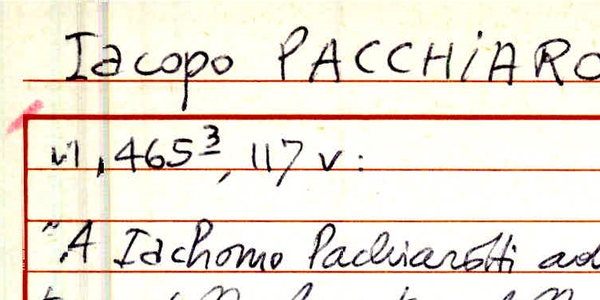 Iacopo PACCHiARO
VI, 465³, 117 v:
"A Iachomo Pachiarotti ad